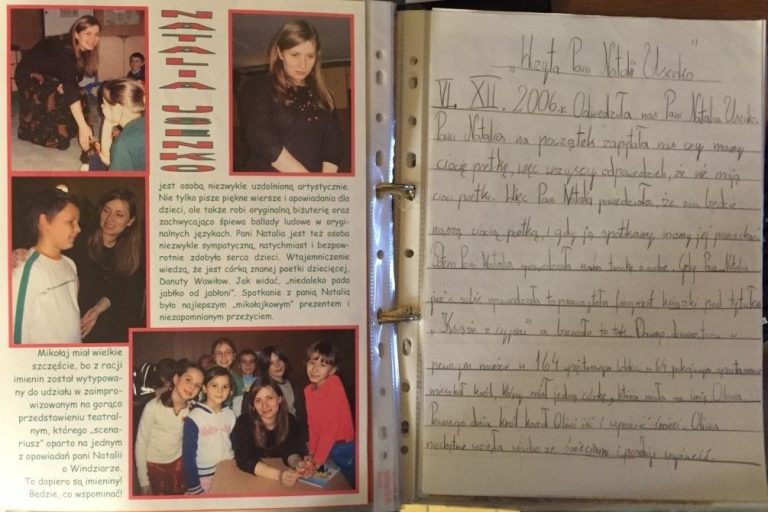 NATALIA USENKO
jest osobą niezwykle uzdolnioną artystycznie.
Nie tylko pisze piękne wiersze i opowiadania dla
dzieci, ale także robi oryginalną biżuterię oraz
zachwycająco śpiewa ballady ludowe w orygi-
nalnych językach. Pani Natalia jest też osobą
niezwykle sympatyczną, natychmiast i bezpow-
rotnie zdobyła serca dzieci. Wtajemniczenie
wiedzą, że jest córką znanej poetki dziecięcej,
Danuty Wawiłow. Jak widać, „niedaleko pada
jabłko od jabłoni". Spotkanie z panią Natalią
było najlepszym „mikołajkowym" prezentem i
niezapomnianym przeżyciem.
Mikołaj miał wielkie
szczęście, bo z racji
imienin został wytypowa-
ny do udziału w zaimpro-
wizowanym na gorąco
przedstawieniu teatral-
nym, którego „scena-
riusz" oparto na jednym
z opowiadań pani Natalii
o Windziarze.
To dopiero są imieniny!
Będzie, co wspominać!
„Wizyta Pani Natalii Usenko"
VI. XII. 2006r. Odwiedziła nas Pani Natalia Usenko.
Pani Natalia na początek zapytała nas czy mamy
ciocię poetkę, więc wszyscy odpowiedzieli, że nie mają
cioci poetki. Więc Pani Natalia powiedziała, że ona będzie
naszą ciocią poetką, i gdy ją spotkamy mamy jej
Potem Pani Natalia opowiedziała nam trochę o sobie. Gdy Pani Natalia
już o sobie opowiedziała to przeczytała fragment książki pod tytułem
a brzmiało to tak: Dawno, dawno temu w
pewnym mieście w 164 piętrowym bloku w 64 pokojowym
mieszkał król, który miał jedną córkę, która miała na imię Oliwia.
Pewnego dnia król kazał Oliwii iść i wyrzucić śmieci. Oliwia
niechętnie wzięła wiadro ze śmieciami i